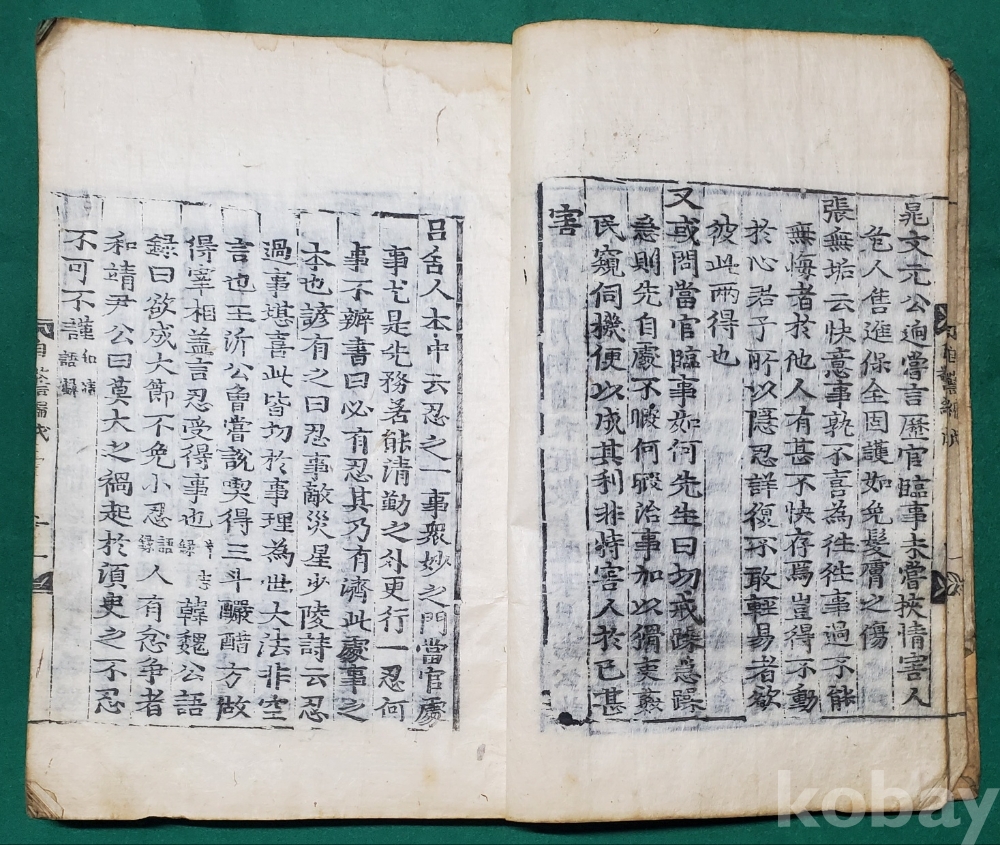 晁文元公逈嘗言歷官臨事未嘗挾情害人
危人售進保全固護如免髮膚之傷
張無垢云快意事孰不喜為往往事過不能
無悔者於他人有甚不快存焉豈得不動
於心君子所以隱忍詳復不敢輕易者欲
彼此兩得也
又或問當官臨事如何先生曰切戒躁急躁
急則先自處不暇何暇治事加以猾吏姦
民窺伺機便以成其利非特害人於己甚
害
呂舍人本中云忍之一事衆妙之門當官處
事尤是先務若能清勤之外更行一忍何
事不辦書曰必有忍其乃有濟此處事之
本也諺有之曰忍事敵災星少陵詩云忍
過事堪喜此皆切於事理為世大法非空
言也王沂公曾嘗說喫得三斗釅醋方做
得宰相盖言忍受得事也 韓魏公語
錄曰欲成大節不免小忍 語錄 人有忿争者
和靖尹公曰莫大之禍起於須臾之不忍
不可不謹 和靖語錄
自警編
kobay